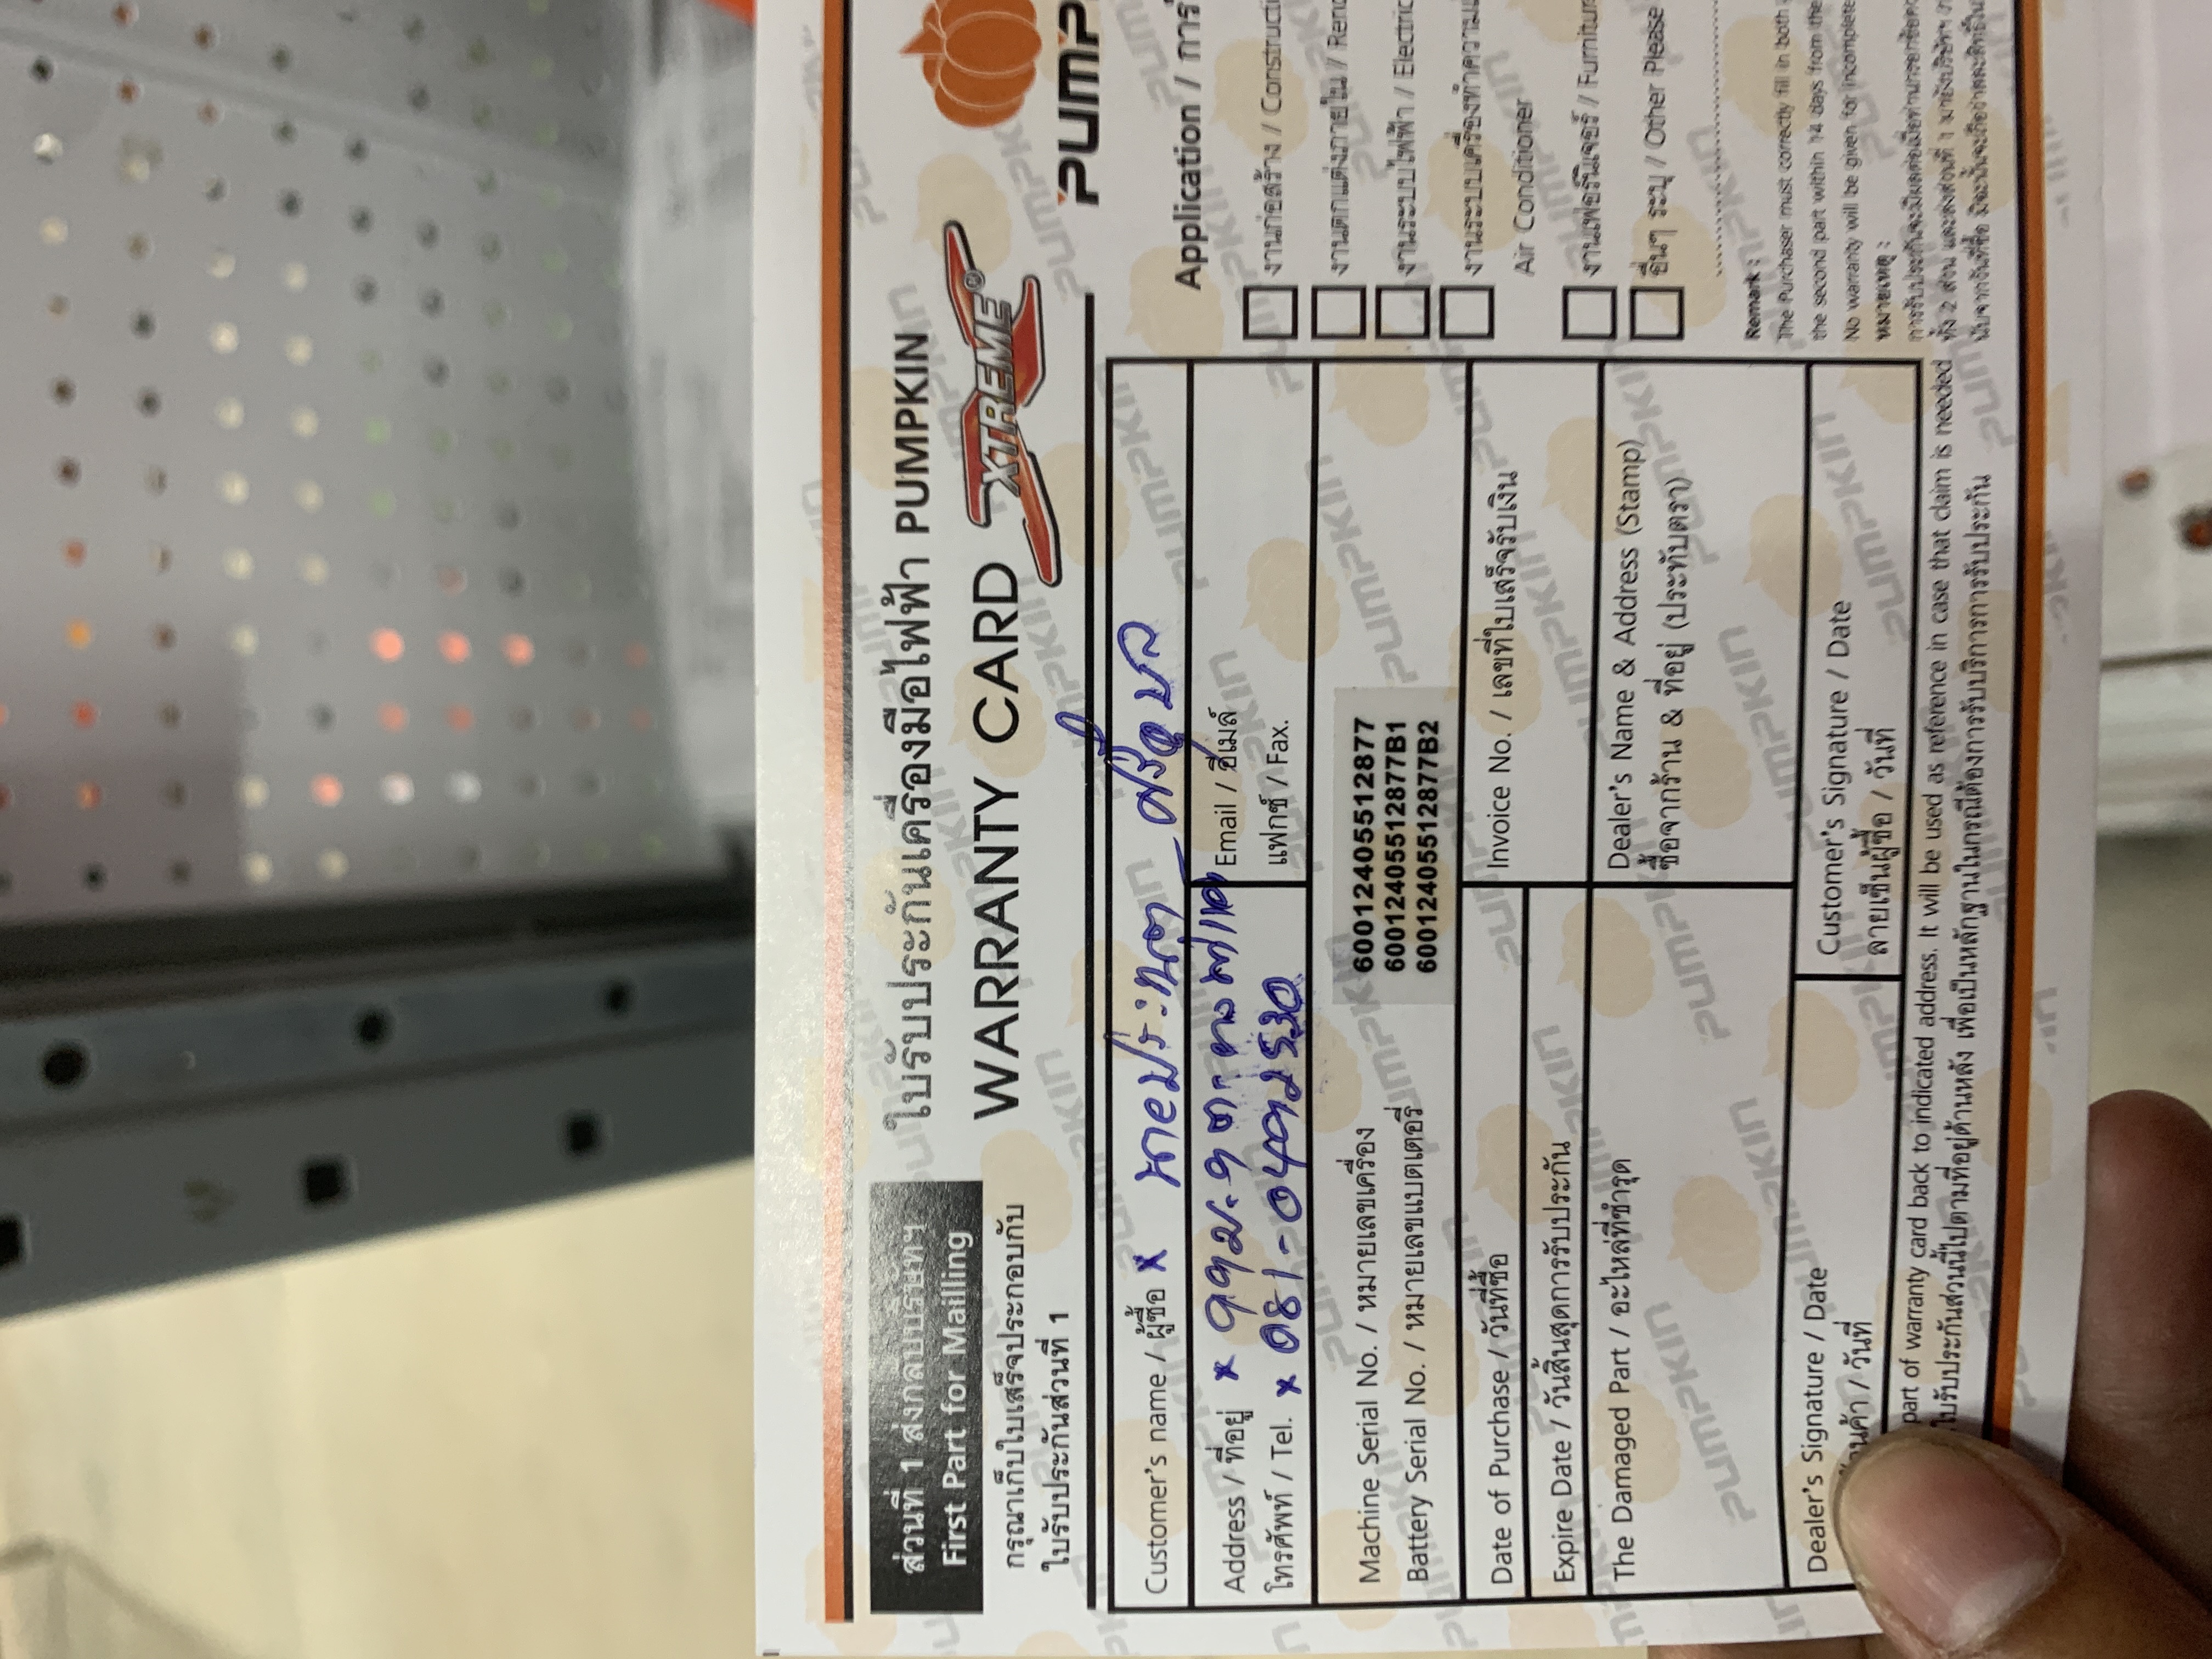 ส่วนที่ 1 ส่งกลับบริษัทฯ
First Part for Mailling
กรุณาเก็บใบเสร็จประกอบกับ
ใบรับประกันส่วนที่ 1
ใบรับประกันเครื่องมือไฟฟ้า PUMPKIN
WARRANTY CARD XTREME®
PUMP
Customer's name / ผู้ซื้อ x นายประ
Address / ที่อยู่ x
Email / อีเมล์
โทรศัพท์ / Tel. x 081-0492530
แฟกซ์ / Fax.
Machine Serial No. / หมายเลขเครื่อง
Battery Serial No. / หมายเลขแบตเตอรี่
6001240551​2877
60012405512877B1
60012405512877B2
Date of Purchase / วันที่ซื้อ
Invoice No. / เลขที่ใบเสร็จรับเงิน
Expire Date / วันสิ้นสุดการรับประกัน
The Damaged Part / อะไหล่ที่ชำรุด
Dealer's Name & Address (Stamp)
ซื้อจากร้าน & ที่อยู่ (ประทับตรา)
Dealer's Signature / Date
วันที่
Customer's Signature / Date
ลายเซ็นผู้ซื้อ / วันที่
Application / การ
งานก่อสร้าง / Constructi
งานตกแต่งภายใน / Reno
งานระบบไฟฟ้า / Electric
งานระบบเครื่องทำความเ
Air Conditioner
งานเฟอร์นิเจอร์ / Furnitur
อื่นๆ ระบุ / Other Please
Remark :
The Purchaser must correctly fill in both
the second part within 14 days from the
No warranty will be given for incomplete
หมายเหตุ :
part of warranty card back to indicated address. It will be used as reference in case that claim is needed
ใบรับประกันส่วนนี้ไปตามที่อยู่ด้านหลัง เพื่อเป็นหลักฐานในกรณีต้องการรับบริการการรับประกัน